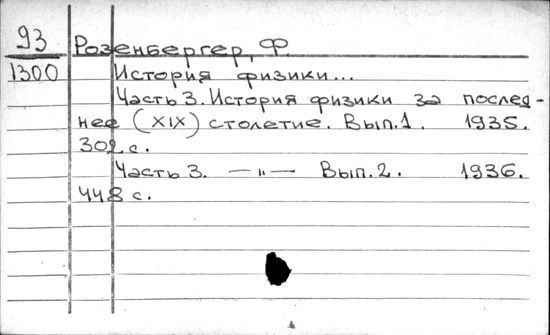 93 Розенбергер, Ф.
1300 История физики...
Часть 3. История физики за послед-
нее (XIX) столетие. Вып. 1. 1935.
302 с.
Часть 3. —"— Вып. 2. 1936.
448 с.